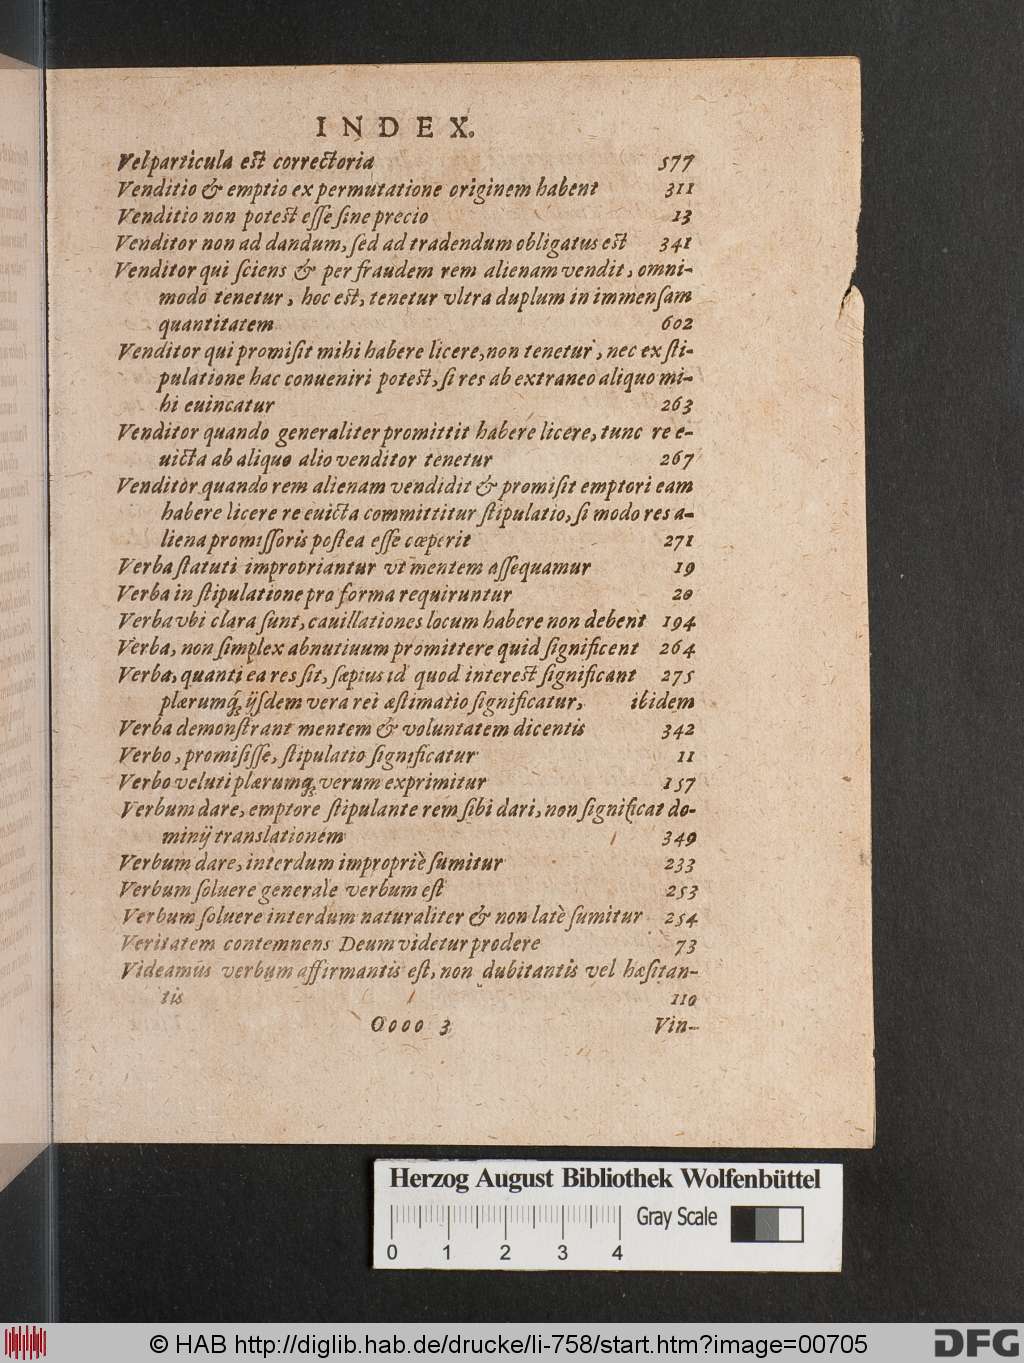 INDEX.
Vel particula est correctoria 577
Venditio & emptio ex permutatione originem habent 311
Venditio non potest eſſe ſine precio 13
Venditor non ad dandum, ſed ad tradendum obligatus est 341
Venditor qui ſciens & per fraudem rem alienam vendit, omni-
modo tenetur, hoc est, tenetur vltra duplum in immenſam
quantitatem 602
Venditor qui promiſit mihi habere licere, non tenetur, nec ex ſti-
pulatione hac conueniri potest, ſi res ab extraneo aliquo mi-
hi euincatur 263
Venditor quando generaliter promittit habere licere, tunc re e-
uicta ab aliquo alio venditor tenetur 267
Venditor quando rem alienam vendidit & promiſit emptori eam
habere licere re euicta committitur ſtipulatio, ſi modo res a-
liena promiſſoris poſtea eſſe cœperit 271
Verba ſtatuti impropriantur vt mentem aſſequamur 19
Verba in ſtipulatione pro forma requiruntur 20
Verba vbi clara ſunt, cauillationes locum habere non debent 194
Verba, non ſimplex abnutiuum promittere quid ſignificent 264
Verba, quanti ea res ſit, ſæpius id quod interest ſignificant 275
plærumq́ꝫ ijſdem vera rei æſtimatio ſignificatur, ibidem
Verba demonſtrant mentem & voluntatem dicentis 342
Verbo, promiſiſſe, ſtipulatio ſignificatur 11
Verbo veluti plærumqꝫ verum exprimitur 157
Verbum dare, emptore ſtipulante rem ſibi dari, non ſignificat do-
minij translationem 349
Verbum dare, interdum impropriè ſumitur 233
Verbum ſoluere generale verbum eſt 253
Verbum ſoluere interdum naturaliter & non latè ſumitur 254
Veritatem contemnens Deum videtur prodere 73
Videamus verbum affirmantis eſt, non dubitantis vel hæſitan-
tis 110
Oooo 3 Vin-
Herzog August Bibliothek Wolfenbüttel
Gray Scale
0 1 2 3 4
© HAB http://diglib.hab.de/drucke/li-758/start.htm?image=00705
DFG